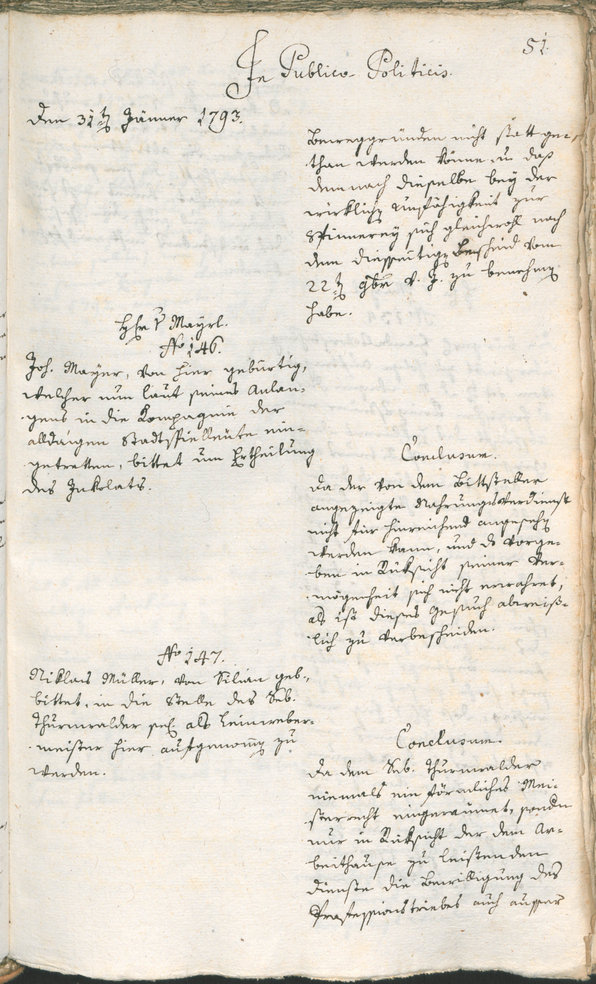 51.
In Publico-Politicis.
Den 31t Jänner 1793.
Beweggründen nicht statt ge-
than werden könne, u. daß
demnach dieselbe bey der
wirklich Unfähigkeit zur
Spinnerey sich gleichwohl nach
dem diesseitig Bescheid vom
22t 9br v. J. zu benehm
habe.
Hr. Mayrl.
No 146.
Joh. Mayer, von hier gebürtig,
welcher nun laut seines Anlan-
gens in die Kompagnie der
alldaigen Stadtspielleute ein-
getretten, bittet um Ertheilung
des Inkolats.
Conclusum.
Da der von dem Bittsteller
angezeigte Nahrungsverdienst
nicht für hinreichend angeseh
werden kann, und das Vorge-
ben in Rüksicht seiner Ver-
mögenheit sich nicht erwahret,
als ist dieses Gesuch abweiß-
lich zu verbescheiden.
No 147.
Niklaus Müller, von Silian geb.,
bittet, in die Stelle des Seb.
Thurnwalder sel. als Leinweber-
meister hier aufgenomm zu
werden.
Conclusum.
Da dem Seb. Thurnwalder
niemals ein förmliches Mei-
sterrecht eingeraumet, sondn
nur in Rüksicht der dem Ar-
beithause zu leistenden
Dienste die Bewilligung des
Professionstriebes auch ausser